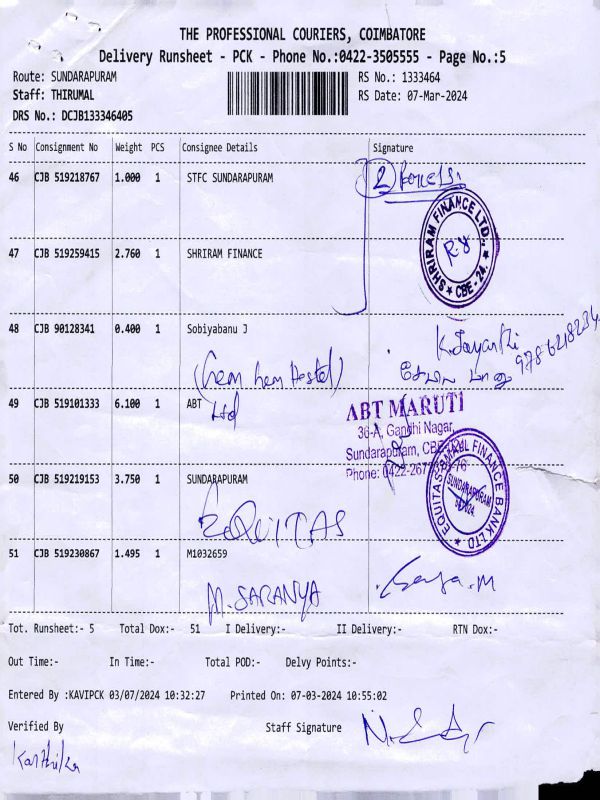 THE PROFESSIONAL COURIERS, COIMBATORE
Delivery Runsheet - PCK - Phone No.:0422-3505555 - Page No.:5
Route: SUNDARAPURAM
RS No.: 1333464
Staff: THIRUMAL
RS Date: 07-Mar-2024
DRS No.: DCJB133346405
S No Consignment No Weight PCS Consignee Details Signature
46 CJB 519218767 1.000 1 STFC SUNDARAPURAM
2 Parcels.
SHRIRAM FINANCE LTD., CBE - 24.
47 CJB 519259415 2.760 1 SHRIRAM FINANCE
48 CJB 90128341 0.400 1 Sobiyabanu J
K. Jayanthi
9786218234
(hem hem Hostel)
49 CJB 519101333 6.100 1 ABT Ltd
ABT MARUTI
36-A, Gandhi Nagar,
Sundarapuram,
Phone: 0422-267
50 CJB 519219153 3.750 1 SUNDARAPURAM
EQUITAS SMALL FINANCE BANK LTD
SUNDARAPURAM
EQUITAS
51 CJB 519230867 1.495 1 M1032659
M. SARANYA
Tot. Runsheet:- 5 Total Dox:- 51 I Delivery:- II Delivery:- RTN Dox:-
Out Time:- In Time:- Total POD:- Delvy Points:-
Entered By :KAVIPCK 03/07/2024 10:32:27 Printed On: 07-03-2024 10:55:02
Verified By Staff Signature
Karthika